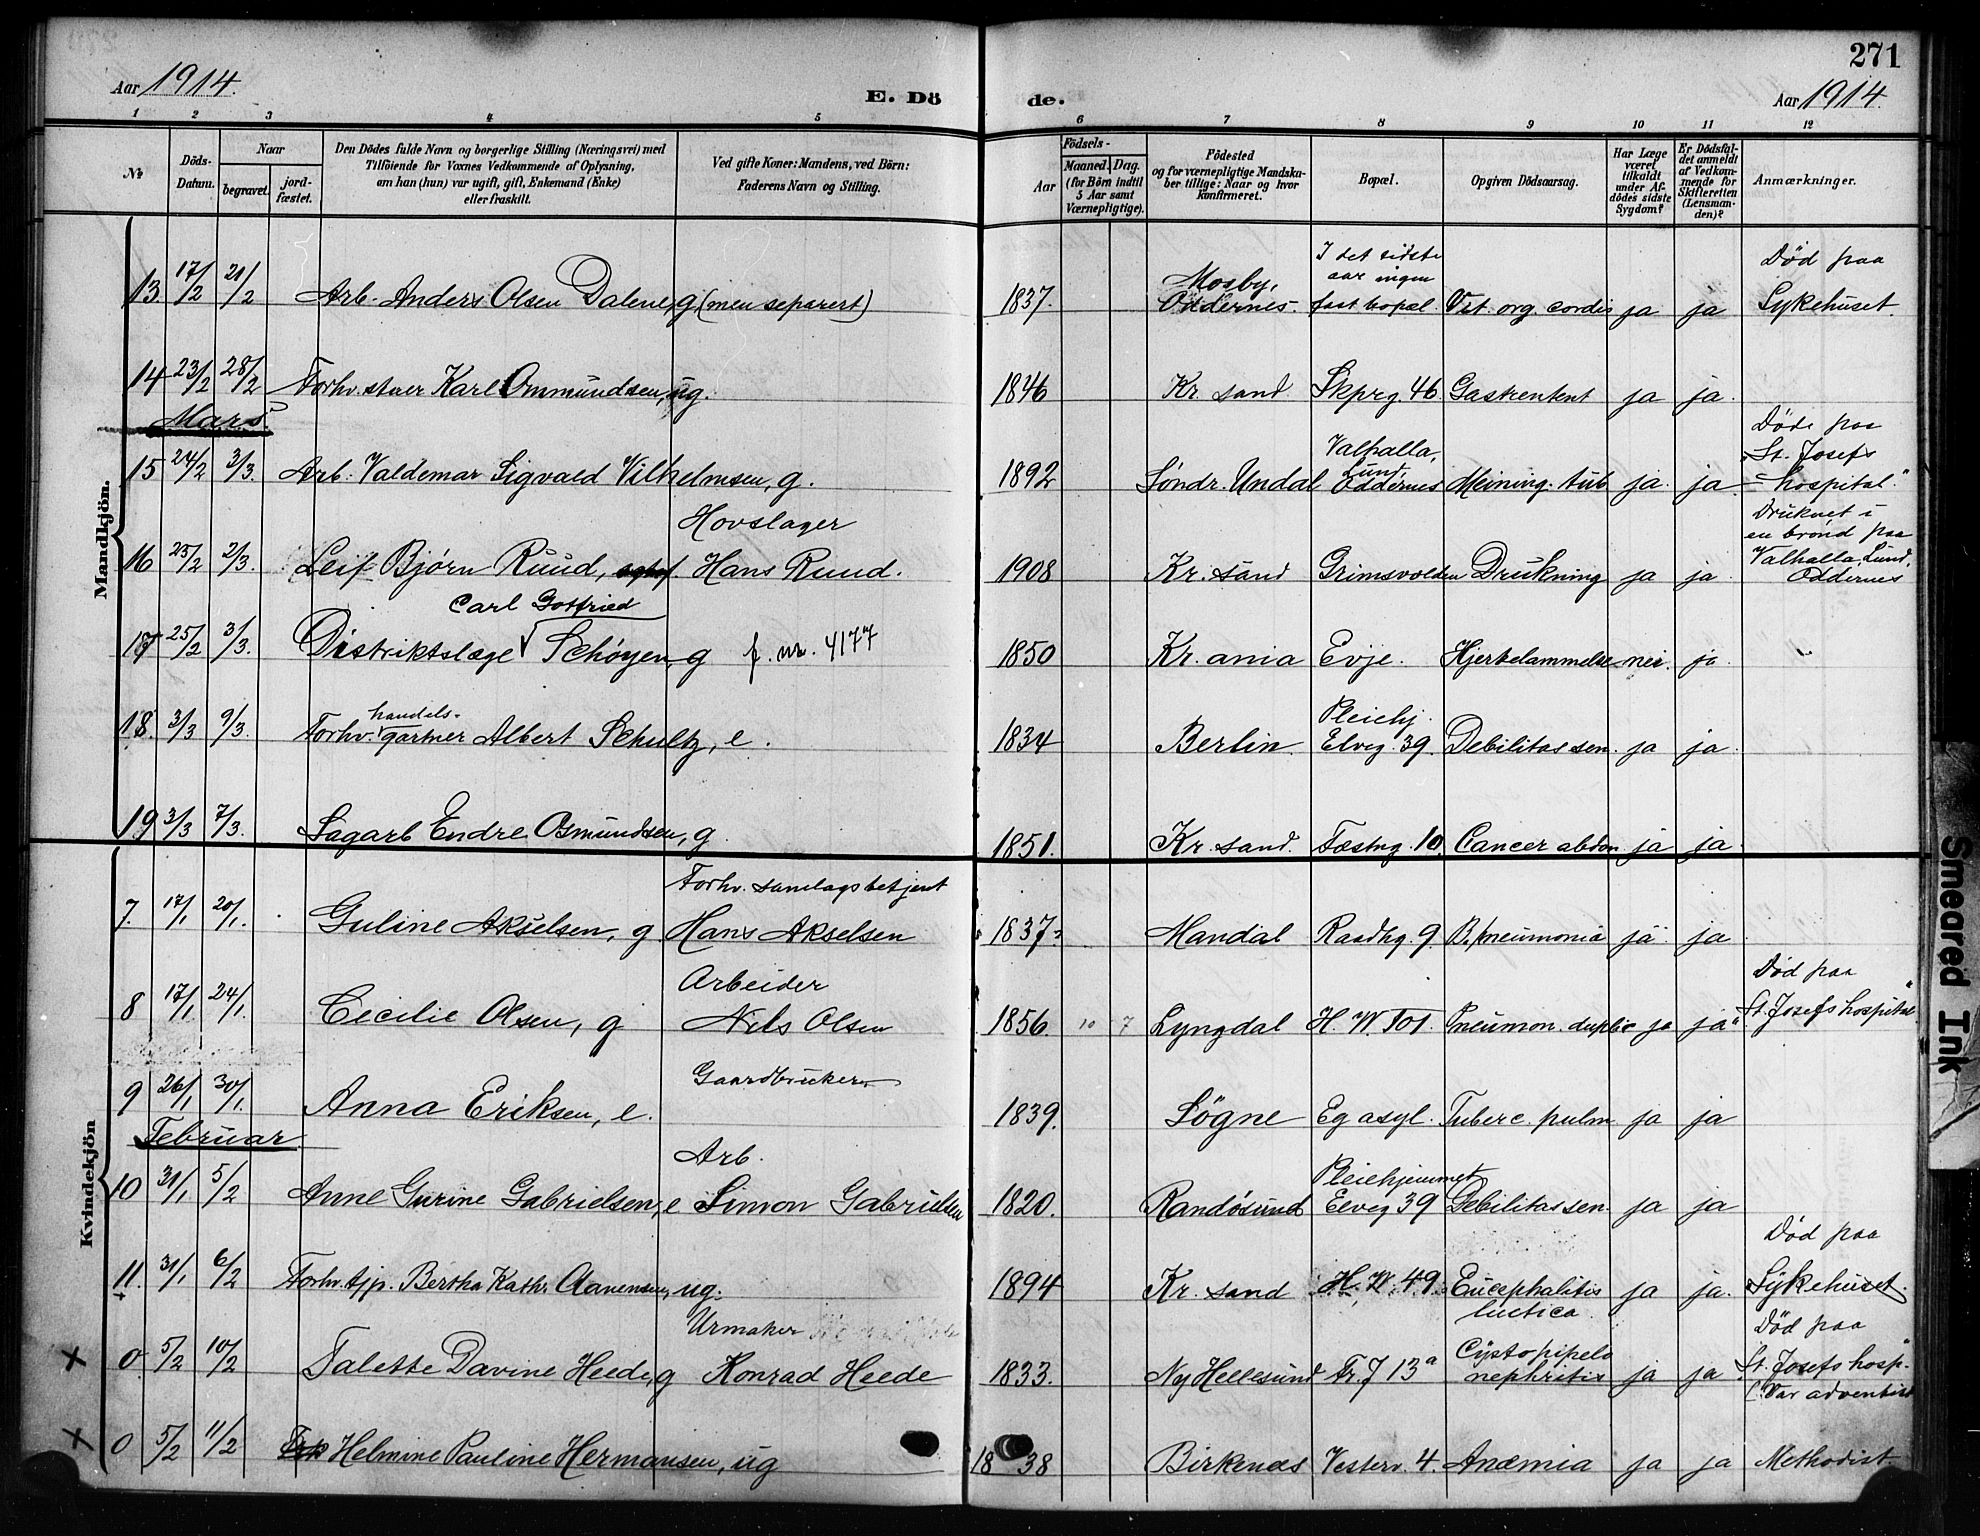 271
Aar 1914.
E. Dö de.
Aar 1914.
1 2 3 4 5 6 7 8 9 10 11 12
No
Döds-Datum.
Naar
begravet. jord-fæstet.
Den Dödes fulde Navn og borgerlige Stilling (Næringsvei) med
Tilföiende for Voxnes Vedkommende af Oplysning,
om han (hun) var ugift, gift, Enkemand (Enke)
eller fraskilt.
Ved gifte Koner: Mandens, ved Börn:
Faderens Navn og Stilling.
Födsels-
Aar Maaned. Dag.
(for Börn indtil
5 Aar samt
Værnepligtige).
Födested
og for værnepligtige Mandska-
ber tillige: Naar og hvor
konfirmeret.
Bopæl.
Opgiven Dödsaarsag.
Har Læge
været
tilkaldt
under Af-
dödes sidste
Sygdom?
Er Dödsfal-
det anmeldt
af Vedkom-
mende for
Skifteretten
(Lensman-
den)?
Anmærkninger.
Mandkjön.
13 17/2 21/2 Arb. Anders Olsen Dalene, g (men separert) 1837. Mosby, Oddernes. I det sidste aar ingen fast bopæl. Vit. org. cordis ja ja Død paa Sykehuset.
14 23/2 28/2 Forhv. stuer Karl Ommundsen, ug. 1846 Kr. sand Skprg. 46 Gastrentent ja ja.
Mars
15 24/2 3/3. Arb. Valdemar Sigvald Vilhelmsen, g. 1892 Söndr. Undal Valhalla, Lund, Oddernes Meining. tub ja. ja. Döde paa "St. Josefs hospital."
16 25/2 2/3. Leif Bjørn Ruud, Hovslager Hans Ruud. 1908 Kr. sand Grimsvolden Drukning ja ja. Druknet i en brønd paa Valhalla, Lund, Oddernes
17 25/2 3/3. Distriktslæge Carl Gotfried Schöyen g f. nr. 4177 1850 Kr. ania Evje. Hjertelammelse nei. ja.
18. 3/3 9/3. Forhv. handels-gartner Albert Schultz, e. 1834 Berlin. Pleiehj. Elveg. 39. Debilitas sen. ja ja.
19 3/3 7/3. Sagarb Endre Osmundsen, g. 1851. Kr. sand. Fæstng. 10. Cancer abdom. ja ja.
Kvindekjön
7. 17/1 20/1. Guline Akselsen, g Forhv. samlagsbetjent Hans Akselsen 1837 Mandal Raadhg. 9. B. pneumonia ja ja.
8 17/1 24/1. Cecilie Olsen, g Arbeider Nils Olsen 1856. 10 7 Lyngdal H. W. 101. Pneumon. duplic ja ja Død paa "St. Josefs hospital"
9 26/1 30/1. Anna Eriksen, e. Gaardbruker 1839. Sögne Eg asyl. Tuberc. pulm ja ja
Februar
10 31/1 5/2 Anne Gurine Gabrielsen, e Arb. Simon Gabrielsen 1820. Randösund Pleiehjemmet Elveg 39 Debilitas sen. ja ja
11. 31/1 6/2 Forhv. tjp. Bertha Kathr. Aanensen, ug. 1894 Kr. sand H. W. 49. Encephalitis luetica ja ja. Død paa Sykehuset.
X 0. 5/2 10/2 Talette Davine Heede, g Urmaker Konrad Heede 1833. Ny Hellesund Tr. J 13a Cystopipelo nephritis ja ja Død paa "St. Josefs hosp." (Var adventist
X 0 5/2 11/2 Helmine Pauline Hermansen, ug 1838 Birkenæs Vesterv. 4. Anæmia ja ja Methodist.
Smeared Ink